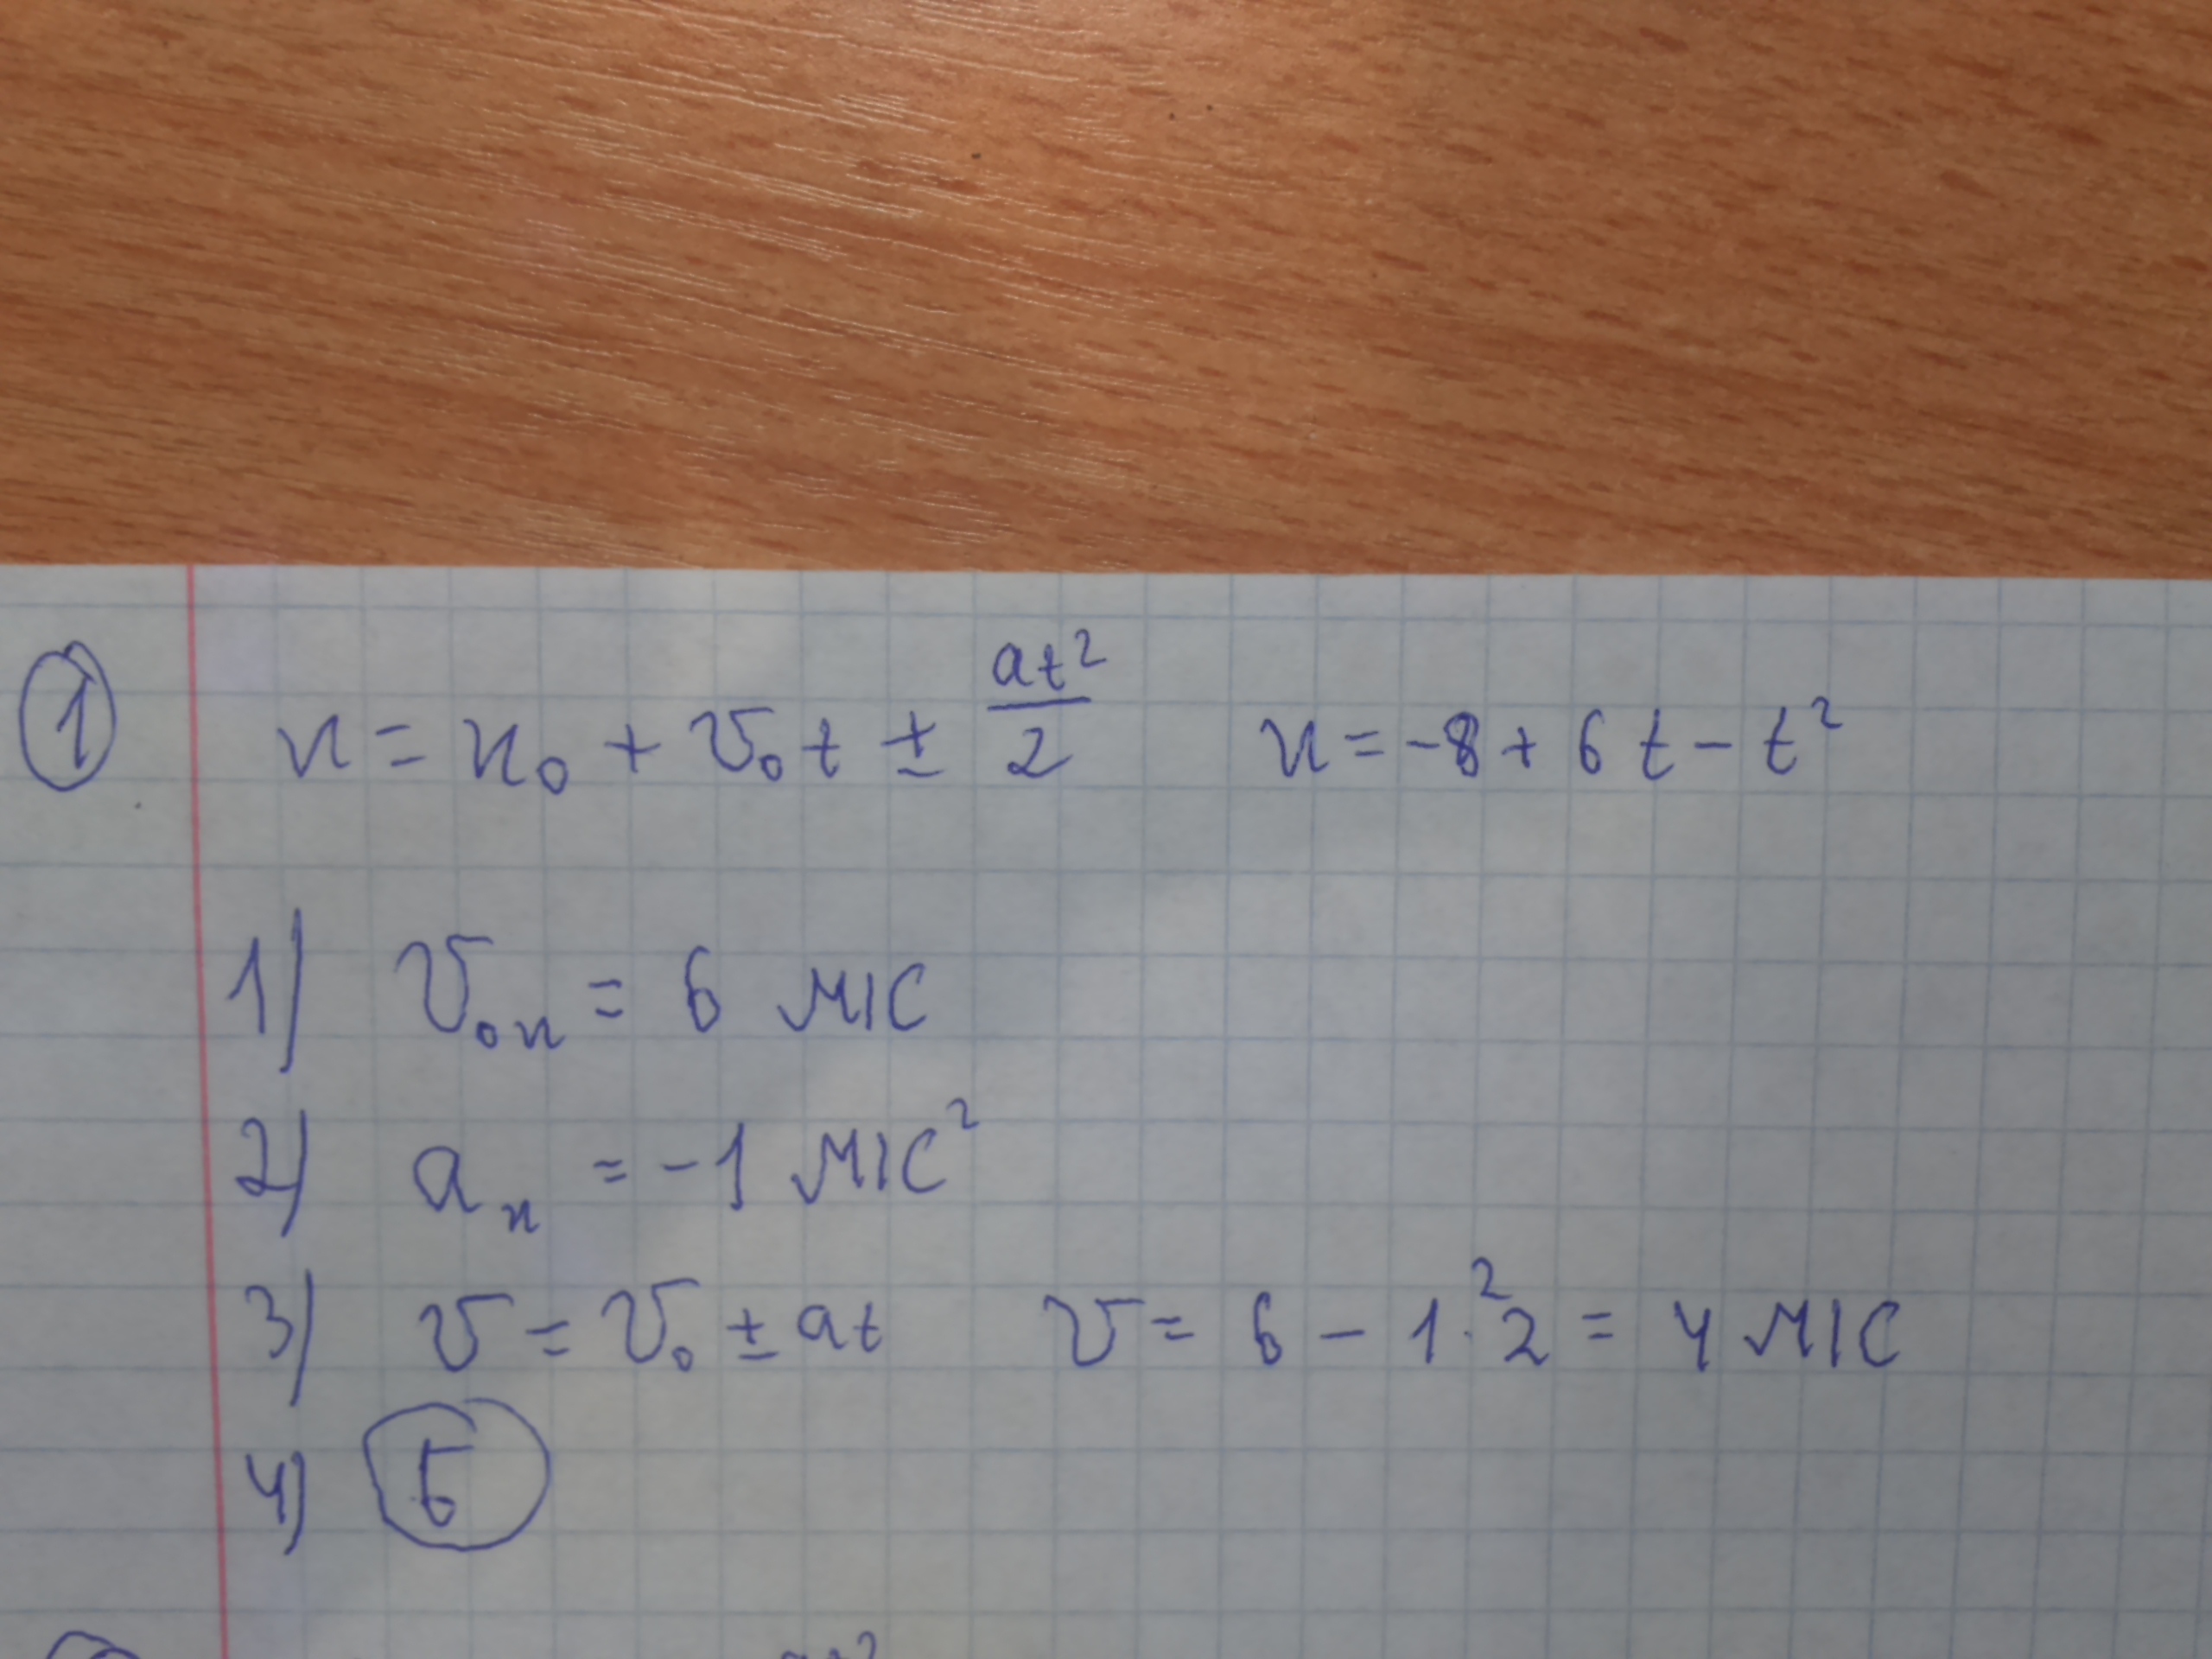 ① x = x₀ + v₀t ± at²/2 x = -8 + 6t - t²
1) v₀ₓ = 6 м/с
2) aₓ = -1 м/с²
3) v = v₀ ± at v = 6 - 1·²2 = 4 м/с
4) Б